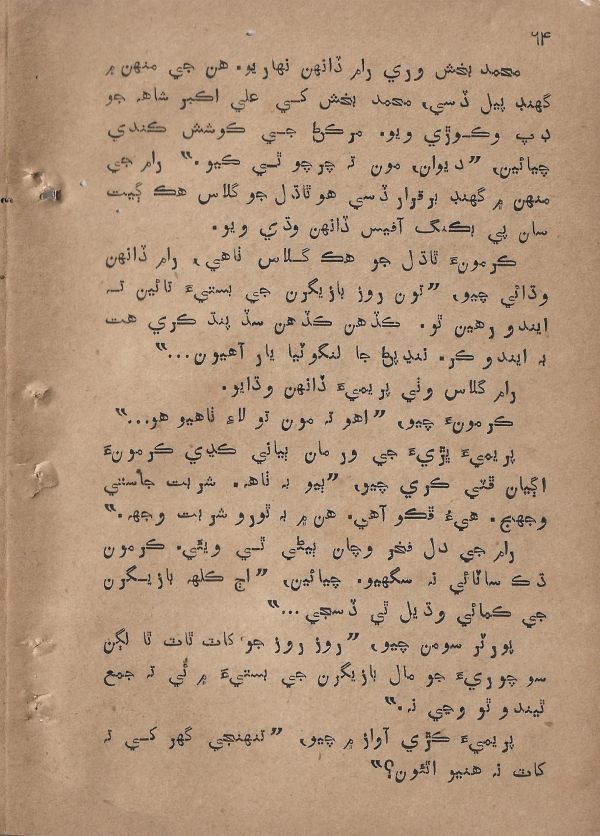 ٦۴
محمد بخش وري رام ڏانهن نهاريو. هن جي منهن ۾
گهنڊ پيل ڏسي، محمد بخش کـي علي اڪبر شاهہ جو
ڊپ وڪوڙي ويو. مرڪڻ جـي ڪوشش ڪندي
چيائين، ”ديوان، مون تہ چرچو ٿـي ڪيو.“ رام جي
منهن ۾ گهنڊ برقرار ڏسي هو ٿاڌل جو گلاس هڪ ڳيت
سان پي بڪنگ آفيس ڏانهن وڌي ويو.
ڪرمونءَ ٿاڌل جو هڪ گـلاس ٺاهي، رام ڏانهن
وڌائي چيو، ”تون روز بازيگرن جي بستيءَ تائين تـہ
ايندو رهين ٿو. ڪڏهن ڪڏهن سڏ پنڌ ڪري هت
بہ ايندو ڪر. ننڍپڻ جا لنگوٽيا يار آهيون...“
رام گلاس وٺي پريميءَ ڏانهن وڌايو.
ڪرمونءَ چيو، ”اهو تہ مون تو لاءِ ٺاهيو هو...“
پريميءَ ٻڙيءَ جي ور مان ٻيائي ڪڍي ڪرمونءَ
اڳيان ڦٽي ڪري چيو، ”ٻيو بہ ٺاهہ. شربت جاستي
وجهج. هيءُ ڦڪو آهي. هن ۾ بہ ٿورو شربت وجهہ.“
رام جي دل فخر وچان ٻيڻي ٿـي ويئي. ڪرمون
ڌڪ ساٽائي نہ سگهيو. چيائين، ”اڄ ڪلهہ بازيـگرن
جي ڪمائي وڌيل ٿي ڏسجي...“
پورٽر سومن چيو، ”روز روز جو کات ٿاٿ ٿا لڳن
سو چوريءَ جو مال بازيگرن جي بستيءَ ۾ ئي تہ جمع
ٿيندو ٿو وڃي نہ.“
پريميءَ ڪڙي آواز ۾ چيو، ”تنهنجي گهر کـي تہ
کات نہ هنيو اٿئون؟“